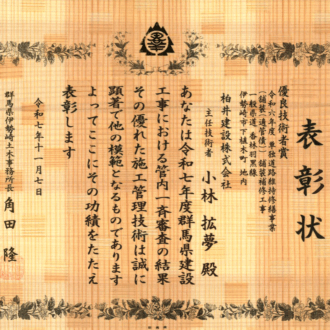 表彰状
優良技術者賞
令和六年度 単独道路維持修繕事業
(舗装(適管債))舗装補修工事
一般県道 香林羽黒線
伊勢崎市下植木町 地内
柏井建設株式会社
主任技術者
小林 拡夢 殿
あなたは令和七年度群馬県建設
工事における管内一斉審査の結果
その優れた施工管理技術は誠に
顕著で他の模範となるものであります
よってここにその功績をたたえ
表彰します
令和七年十一月七日
群馬県伊勢崎土木事務所長
角田 隆